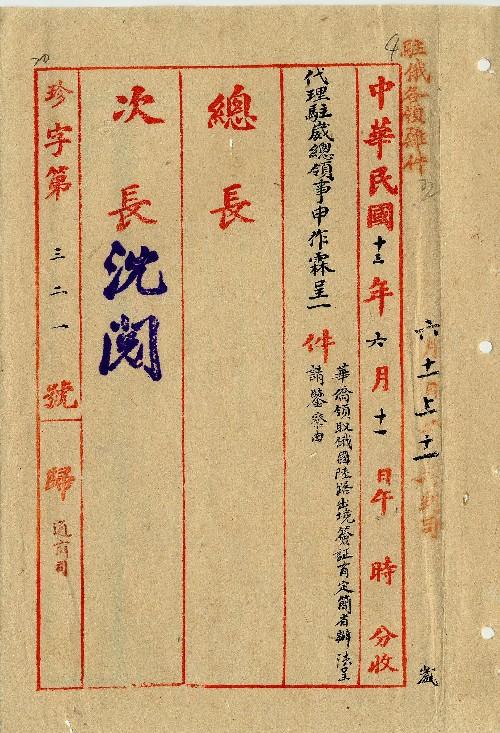 駐俄各領雜件
六 十一 上 十一
中華民國十三年六月十一日午 時 分收
代理駐崴總領事申作霖呈一件
華僑領取俄國陸路出境簽証肓定簡省辦法呈
請鑒察由
總長
次長 沈閱
珍字第三二一號 歸通商司
崴